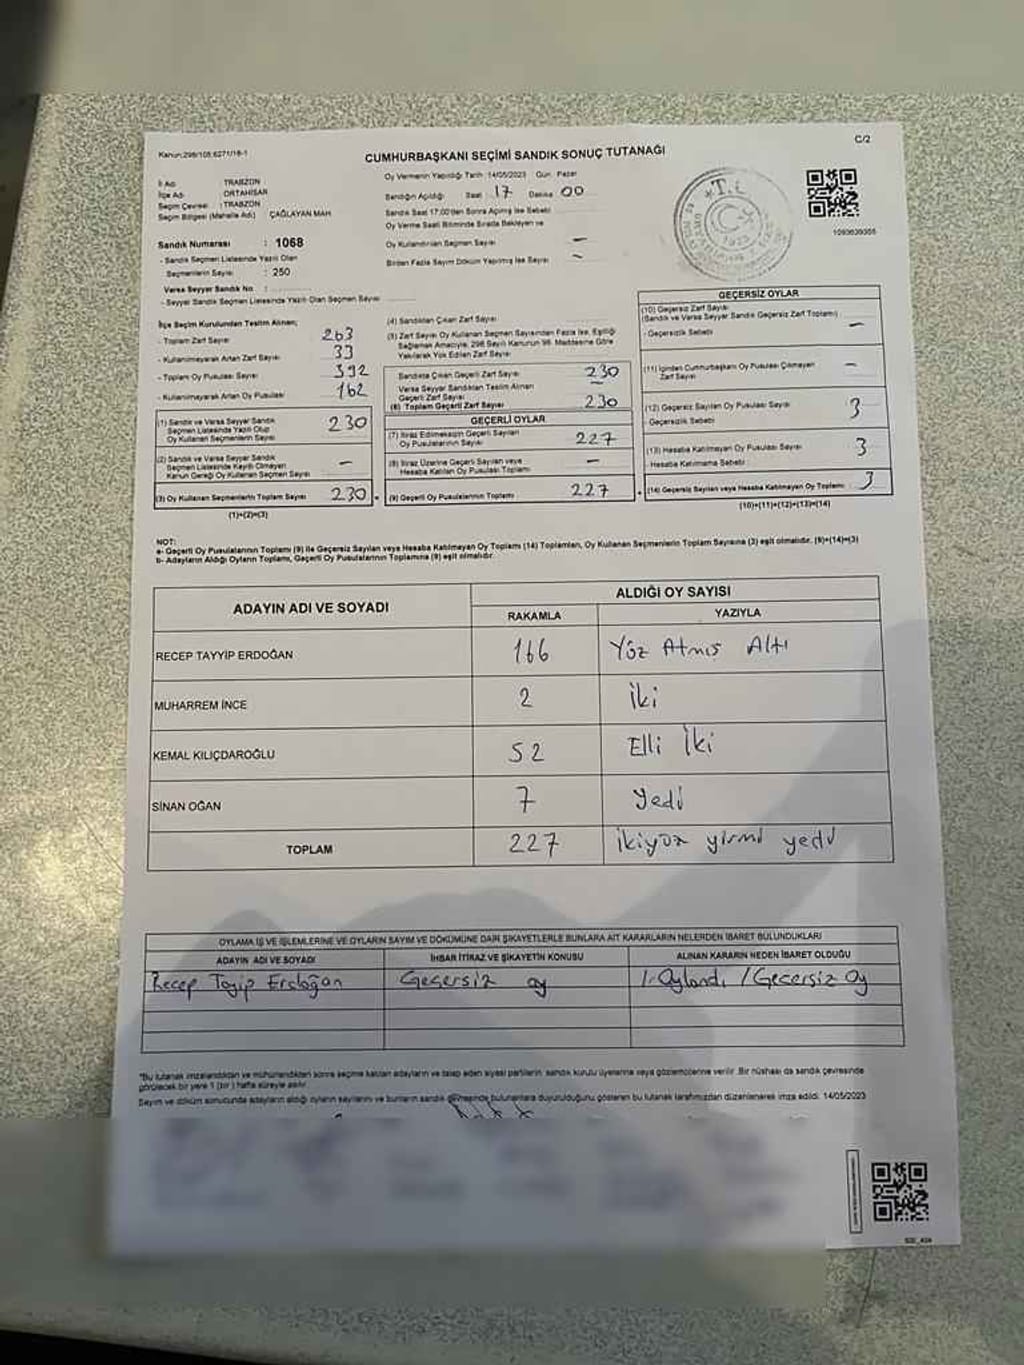 Kanun:298/105,6271/18-1
C/2
CUMHURBAŞKANI SEÇİMİ SANDIK SONUÇ TUTANAĞI
İl Adı : TRABZON
İlçe Adı : ORTAHİSAR
Seçim Çevresi : TRABZON
Seçim Bölgesi (Mahalle Adı) ÇAĞLAYAN MAH.
Sandık Numarası : 1068
- Sandık Seçmen Listesinde Yazılı Olan
Seçmenlerin Sayısı : 250
Varsa Seyyar Sandık No :
- Seyyar Sandık Seçmen Listesinde Yazılı Olan Seçmen Sayısı
Oy Vermenin Yapıldığı Tarih :14/05/2023 Gün: Pazar
Sandığın Açıldığı Saat : 17 Dakika 00
Sandık Saat 17.00'den Sonra Açılmış İse Sebebi
Oy Verme Saati Bitiminde Sırada Bekleyen ve
Oy Kullandırılan Seçmen Sayısı –
Birden Fazla Sayım Döküm Yapılmış İse Sayısı –
T.C.
1093639305
İlçe Seçim Kurulundan Teslim Alınan;
- Toplam Zarf Sayısı 263
- Kullanılmayarak Artan Zarf Sayısı 33
- Toplam Oy Pusulası Sayısı 392
- Kullanılmayarak Artan Oy Pusulası 162
(1) Sandık ve Varsa Seyyar Sandık
Seçmen Listesinde Yazılı Olup
Oy Kullanan Seçmenlerin Sayısı 230
(2) Sandık ve Varsa Seyyar Sandık
Seçmen Listesinde Kayıtlı Olmayan
Kanun Gereği Oy Kullanan Seçmen Sayısı –
(3) Oy Kullanan Seçmenlerin Toplam Sayısı 230
(1)+(2)=(3)
(4) Sandıktan Çıkan Zarf Sayısı
(5) Zarf Sayısı Oy Kullanan Seçmen Sayısından Fazla İse, Eşitliği
Sağlamak Amacıyla, 298 Sayılı Kanunun 98. Maddesine Göre
Yakılarak Yok Edilen Zarf Sayısı
Sandıkta Çıkan Geçerli Zarf Sayısı 230
Varsa Seyyar Sandıktan Teslim Alınan
Geçerli Zarf Sayısı –
(6) Toplam Geçerli Zarf Sayısı 230
GEÇERLİ OYLAR
(7) İtiraz Edilmeksizin Geçerli Sayılan
Oy Pusulalarının Sayısı 227
(8) İtiraz Üzerine Geçerli Sayılan veya
Hesaba Katılan Oy Pusulası Toplamı –
(9) Geçerli Oy Pusulalarının Toplamı 227
GEÇERSİZ OYLAR
(10) Geçersiz Zarf Sayısı
(Sandık ve Varsa Seyyar Sandık Geçersiz Zarf Toplamı)
- Geçersizlik Sebebi –
(11) İçinden Cumhurbaşkanı Oy Pusulası Çıkmayan
Zarf Sayısı –
(12) Geçersiz Sayılan Oy Pusulası Sayısı 3
- Geçersizlik Sebebi
(13) Hesaba Katılmayan Oy Pusulası Sayısı 3
- Hesaba Katılmama Sebebi
(14) Geçersiz Sayılan veya Hesaba Katılmayan Oy Toplamı 3
(10)+(11)+(12)+(13)=(14)
NOT:
a- Geçerli Oy Pusulalarının Toplamı (9) ile Geçersiz Sayılan veya Hesaba Katılmayan Oy Toplamı (14) Toplamları, Oy Kullanan Seçmenlerin Toplam Sayısına (3) eşit olmalıdır. (9)+(14)=(3)
b- Adayların Aldığı Oyların Toplamı, Geçerli Oy Pusulalarının Toplamına (9) eşit olmalıdır.
ADAYIN ADI VE SOYADI ALDIĞI OY SAYISI
RAKAMLA YAZIYLA
RECEP TAYYİP ERDOĞAN 166 Yüz Atmış Altı
MUHARREM İNCE 2 İki
KEMAL KILIÇDAROĞLU 52 Elli İki
SİNAN OĞAN 7 Yedi
TOPLAM 227 İkiyüz yirmi yedi
OYLAMA İŞ VE İŞLEMLERİNE VE OYLARIN SAYIM VE DÖKÜMÜNE DAİR ŞİKAYETLERLE BUNLARA AİT KARARLARIN NELERDEN İBARET BULUNDUKLARI
ADAYIN ADI VE SOYADI İHBAR İTİRAZ VE ŞİKAYETİN KONUSU ALINAN KARARIN NEDEN İBARET OLDUĞU
Recep Tayip Erdoğan Geçersiz oy 1-Oylandı / Geçersiz Oy
*Bu tutanak imzalandıktan ve mühürlendikten sonra seçime katılan adayların ve talep eden siyasi partilerin sandık kurulu üyelerine veya gözlemcilerine verilir. Bir nüshası da sandık çevresinde
görülecek bir yere 1 (bir) hafta süreyle asılır.
Sayım ve döküm sonucunda adayların aldığı oyların sayılarını ve bunların sandık çevresinde bulunanlara duyurulduğunu gösteren bu tutanak tarafımızdan düzenlenerek imza edildi. 14/05/2023